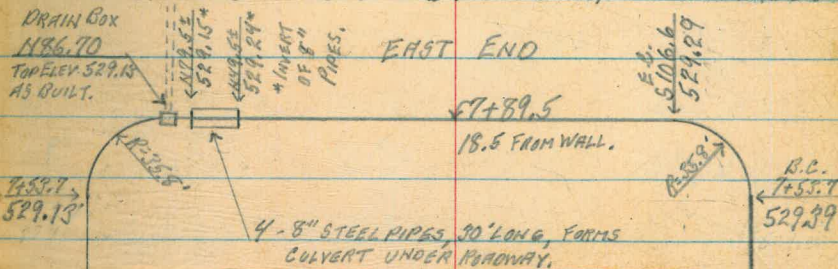 DRAIN BOX
N86.70
TOP ELEV. 529.15
AS BUILT.
N79.5±
529.15*
N49.5±
529.24*
*INVERT
OF 8"
PIPES.
EAST END
E.C.
S106.6
529.29
7+89.5
18.5 FROM WALL.
R=35.8'
R=35.8'
7+53.7
529.13
B.C.
7+53.7
529.39
4-8" STEEL PIPES, 30' LONG, FORMS
CULVERT UNDER ROADWAY.